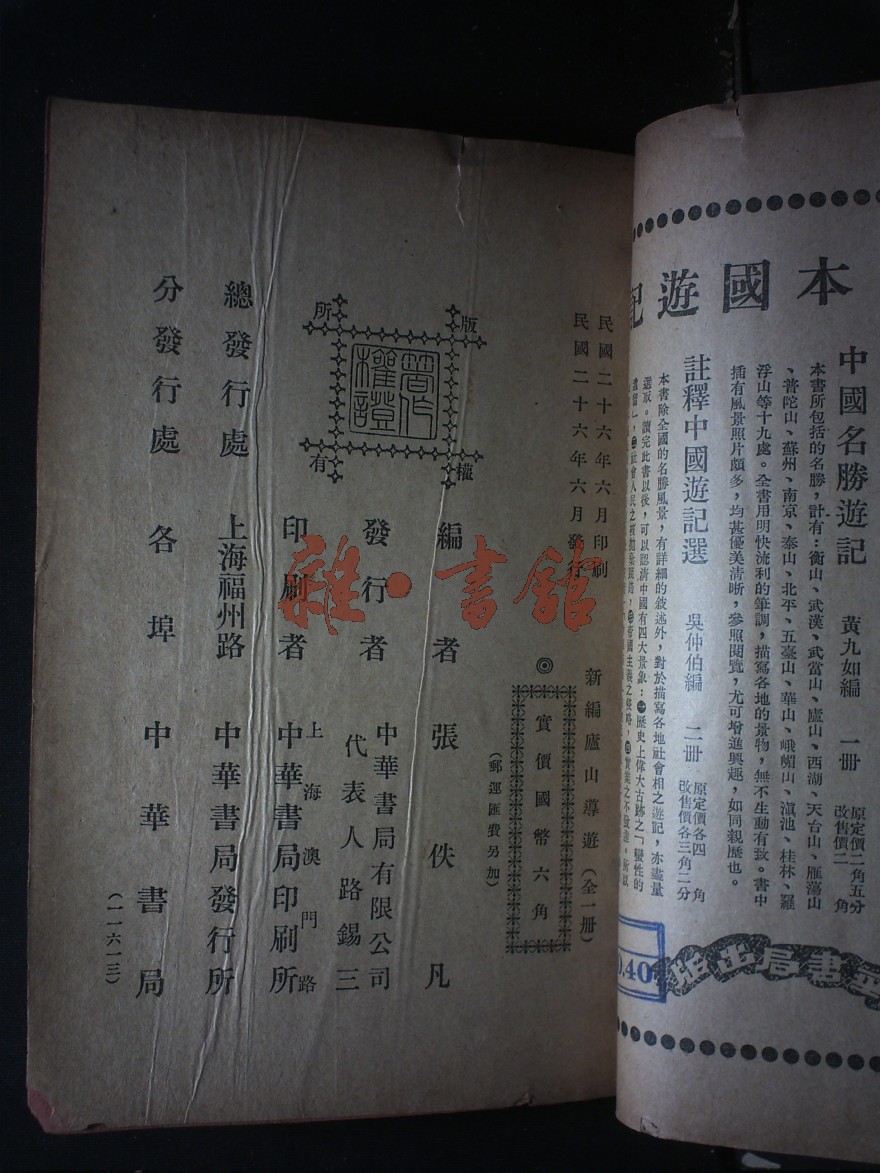 本國遊記
中國名勝遊記　黄九如編　一册　原定價二角五分　改售價二角
本書所包括的名勝，計有：衡山、武漢、武當山、廬山、西湖、天台山、雁蕩山
、普陀山、蘇州、南京、泰山、北平、五臺山、華山、峨嵋山、滇池、桂林、羅
浮山等十九處。全書用明快流利的筆調，描寫各地的景物，無不生動有致。書中
插有風景照片頗多，均甚優美清晰，參照閱覽，尤可增進興趣，如同親歷也。
註釋中國遊記選　吳仲伯編　二册　原定價各四角　改售價各三角二分
本書除全國的名勝風景，有詳細的敘述外，對於描寫各地社會相之遊記，亦盡量
選取。讀完此書以後，可以認清中國有四大景象：㊀歷史上偉大古跡之「蠻性的
書局出版
0.40
民國二十六年六月印刷
民國二十六年六月發行
新編廬山導遊（全一册）
◎實價國幣六角
（郵運匯費另加）
版權所有
著作權證
編者　張佚凡
發行者　中華書局有限公司
代表人路錫三
印刷者　上海澳門路
中華書局印刷所
總發行處　上海福州路　中華書局發行所
分發行處　各埠中華書局
（一一六一三）
雜·書館